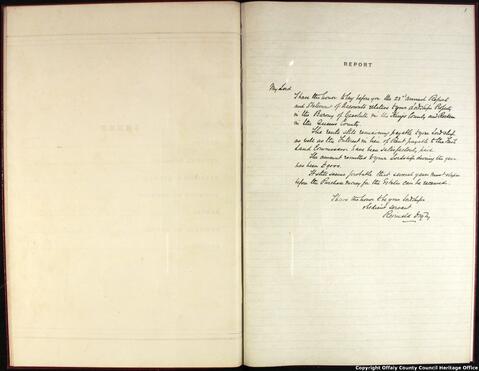 1
REPORT
My Lord
I have the honor to lay before you the 23rd annual Report
and Statement of Accounts relative to your Lordships Property
in the Barony of Geashill in the King's County and
in the Queens County.
The rents still remaining payable to your Lordship
as well as the Interest in lieu of Rent payable to the Irish
Land Commission have been satisfactorily paid.
The amount remitted to your Lordship during the year
has been £9000.
It still seems probable that several years must elapse
before the Purchase money for the Estates can be received.
I have the honor to be your Lordships
obedient servant
Reginald Digby
Copyright Offaly County Council Heritage Office